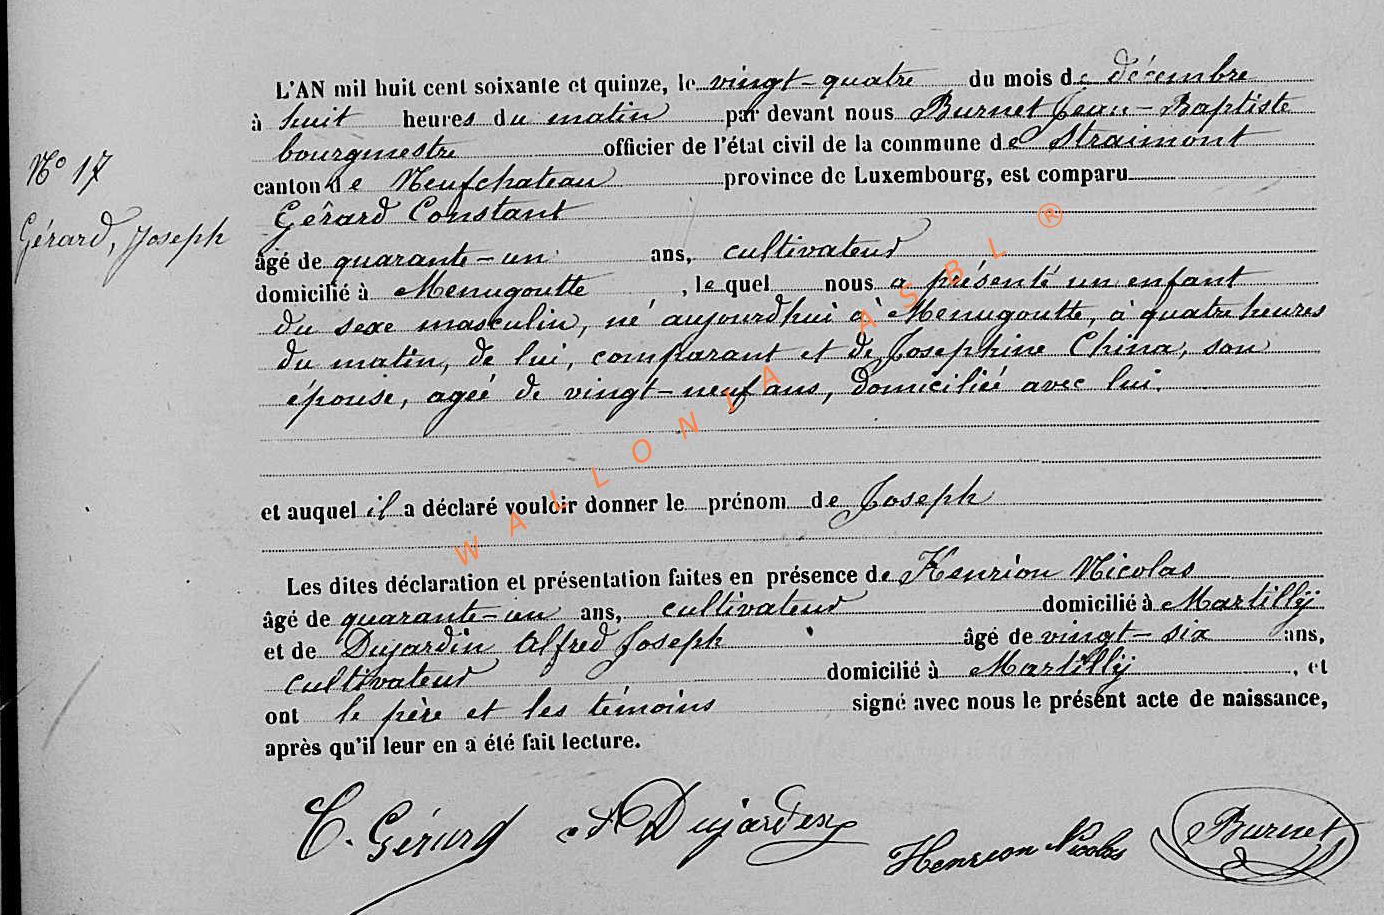 L'AN mil huit cent soixante et quinze, le vingt-quatre du mois de décembre
à huit heures du matin par devant nous Burnet Jean-Baptiste
bourgmestre officier de l'état civil de la commune de Straimont
N° 17
canton de Neufchateau province de Luxembourg, est comparu
Gérard Constant
Gérard, Joseph
âgé de quarante-un ans, cultivateur
domicilié à Menugoutte, le quel nous a présenté un enfant
du sexe masculin, né aujourdhui à Menugoutte, à quatre heures
du matin, de lui, comparant et de Josephine China, son
épouse, agée de vingt-neuf ans, domiciliée avec lui.
et auquel il a déclaré vouloir donner le prénom de Joseph
Les dites déclaration et présentation faites en présence de Henrion Nicolas
âgé de quarante-un ans, cultivateur domicilié à Martilly
et de Dujardin Alfred Joseph âgé de vingt-six ans,
cultivateur domicilié à Martilly, et
ont le père et les témoins signé avec nous le présent acte de naissance,
après qu'il leur en a été fait lecture.
C. Gérard A Dujardin Henrion Nicolas Burnet
WALLONIA ASBL ®